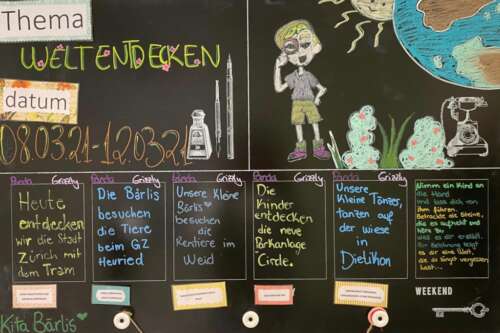 Thema
WELT ENTDECKEN
datum
08.03.21-12.03.21
Panda Grizzly
Heute
entdecken
wir die Stadt
Zürich mit
dem Tram
Panda Grizzly
Die Bärlis
besuchen
die Tiere
beim GZ
Heuried
Panda Grizzly
Unsere Kleine
Bärlis
besuchen
die
Rentiere im
Weid
Panda Grizzly
Die
Kinder
entdecken
die neue
Parkanlage
Circle.
Panda Grizzly
Unsere
Kleine Tänzer,
tanzen auf
der wiese
in
Dietlikon
Nimm ein Kind an
die Hand
und lass dich von
ihm führen.
Betrachte die Steine,
die es aufhebt und
höre zu
was es dir erzählt.
Zur Belohnung zeigt
es dir eine Welt,
die du längst vergessen
hast...
WEEKEND
Kita Bärlis